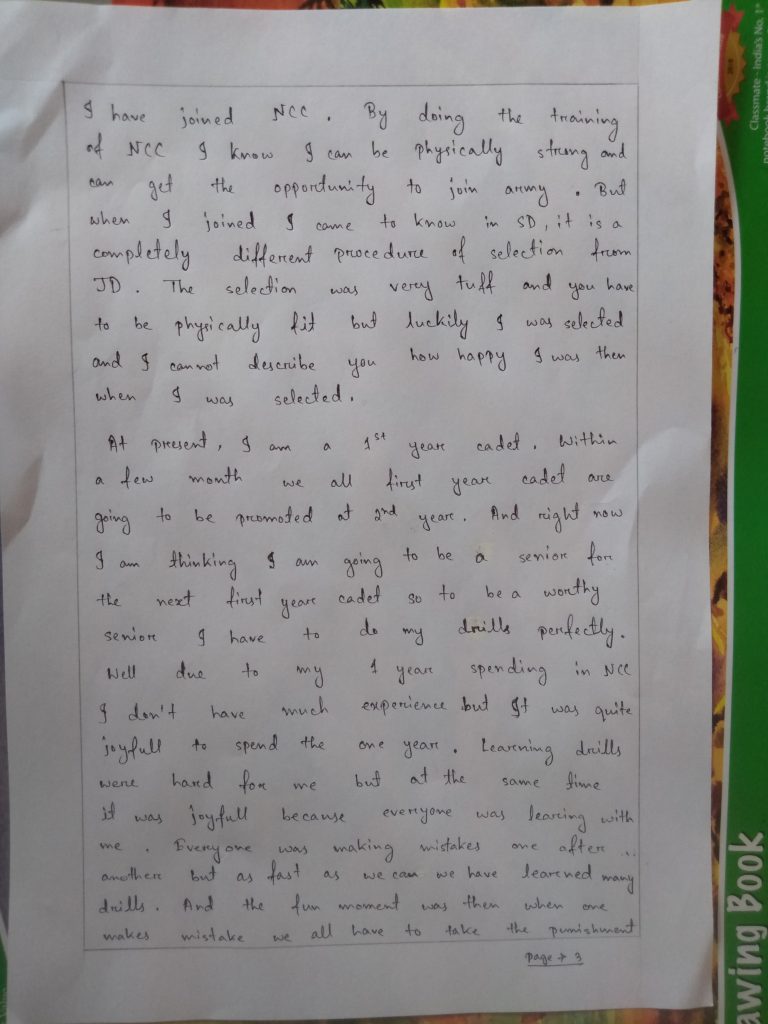 I have joined NCC. By doing the training
of NCC I know I can be physically strong and
can get the opportunity to join army. But
when I joined I came to know in SD, it is a
completely different procedure of selection from
JD. The selection was very tuff and you have
to be physically fit but luckily I was selected
and I cannot describe you how happy I was then
when I was selected.
At present, I am a 1st year cadet. Within
a few month we all first year cadet are
going to be promoted at 2nd year. And right now
I am thinking I am going to be a senior for
the next first year cadet so to be a worthy
senior I have to do my drills perfectly.
Well due to my 1 year spending in NCC
I don't have much experience but It was quite
joyfull to spend the one year. Learning drills
were hard for me but at the same time
it was joyfull because everyone was learing with
me. Everyone was making mistakes one after ..
another but as fast as we can we have learned many
drills. And the fun moment was then when one
makes mistake we all have to take the punishment
Page → 3
Classmate - India's No. 1*
awing Book